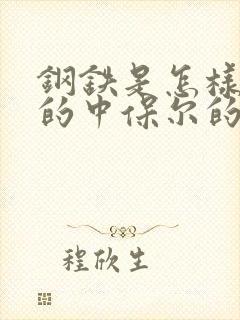 鋼鉄是怎樣
的中保尔的
程欣生